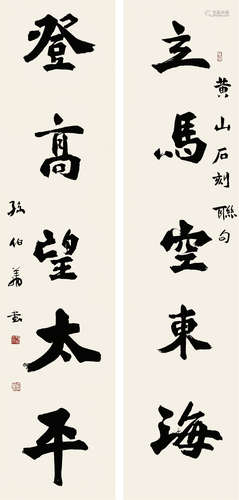 黄山石刻聯句
立馬空東海
登高望太平
孫伯翔書